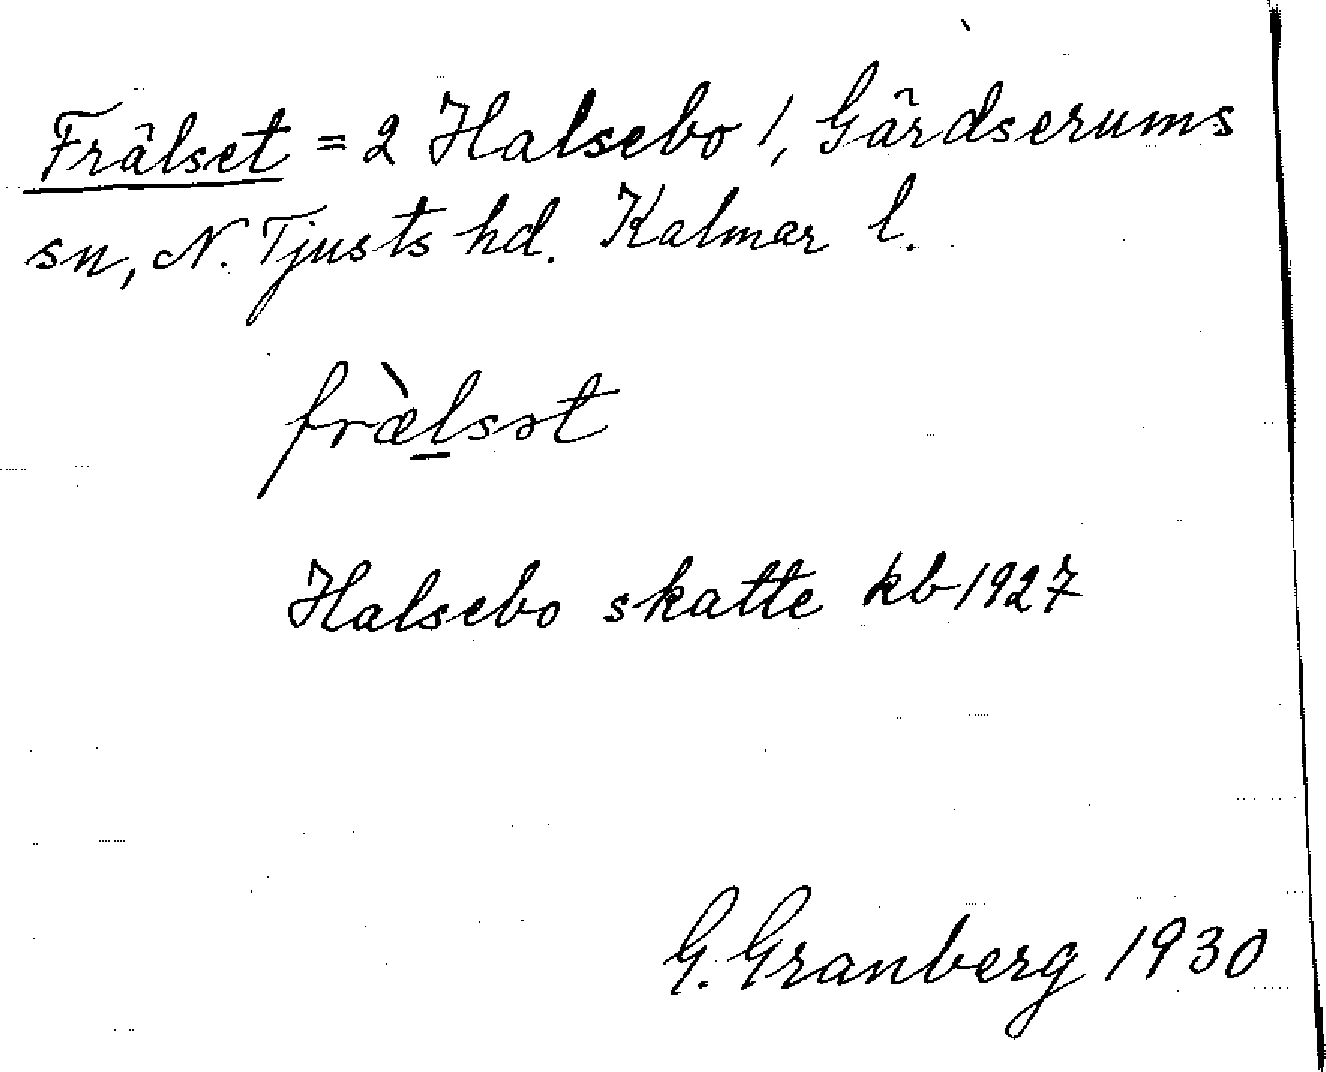 Frälset = 2 Halsebo 1, Gärdserums
sn, N. Tjusts hd. Kalmar l.
fræ̀l̲sət
Halsebo skatte kb 1927
G. Granberg 1930